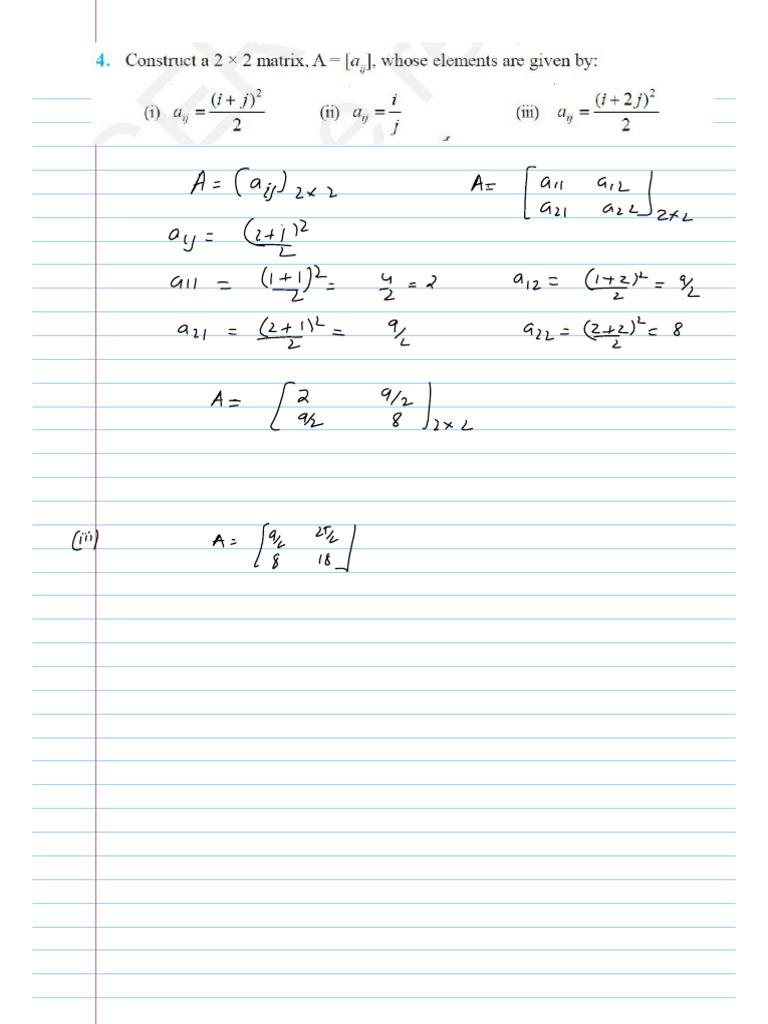 4. Construct a 2 × 2 matrix, A = [a_ij], whose elements are given by:
(i) a_ij = (i + j)²/2 (ii) a_ij = i/j (iii) a_ij = (i + 2j)²/2
A = (a_ij) 2×2 A = [a11 a12
a21 a22] 2×2
a_ij = (i+j)²/2
a11 = (1+1)²/2 = 4/2 = 2 a12 = (1+2)²/2 = 9/2
a21 = (2+1)²/2 = 9/2 a22 = (2+2)²/2 = 8
A = [2 9/2
9/2 8] 2×2
(iii) A = [9/2 25/2
8 18]